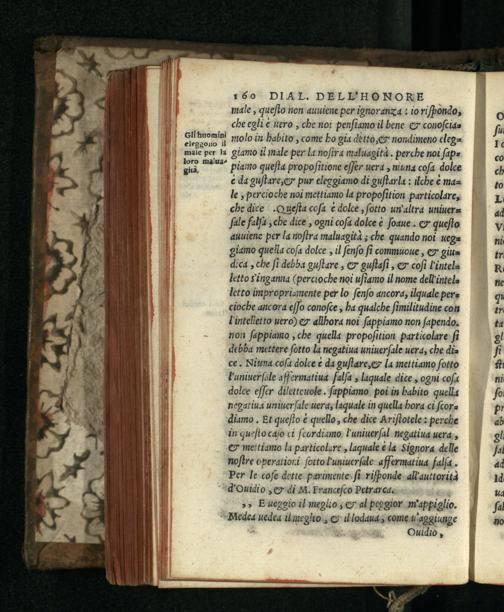 160 DIAL. DELL'HONORE
male, questo non auuiene per ignoranza: io rispondo,
che egli è uero, che noi pensiamo il bene & conoscia=
molo in habito, come ho gia detto, & nondimeno eleg=
giamo il male per la nostra maluagità. perche noi sap=
piamo questa propositione esser uera, niuna cosa dolce
è da gustare, & pur eleggiamo di gustarla: ilche è ma=
le, percioche noi mettiamo la proposition particolare,
che dice. Questa cosa è dolce, sotto un'altra uniuer=
sale falsa, che dice, ogni cosa dolce è soaue. & questo
auuiene per la nostra maluagità; che quando noi ueg=
giamo quella cosa dolce, il senso si commuoue, & giu=
dica, che si debba gustare, & gustasi, & cosi l'intel=
letto s'inganna (percioche noi usiamo il nome dell'intel=
letto impropriamente per lo senso ancora, ilquale per=
cioche ancora esso conosce, ha qualche similitudine con
l'intelletto uero) & allhora noi sappiamo non sapendo.
non sappiamo, che quella proposition particolare si
debba mettere sotto la negatiua uniuersale uera, che di=
ce. Niuna cosa dolce è da gustare, & la mettiamo sotto
l'uniuersale affermatiua falsa, laquale dice, ogni cosa
dolce esser diletteuole. sappiamo poi in habito quella
negatiua uniuersale uera, laquale in quella hora ci scor=
diamo. Et questo è quello, che dice Aristotele: perche
in questo caso ci scordiamo l'uniuersal negatiua uera,
& mettiamo la particolare, laquale è la Signora delle
nostre operationi sotto l'uniuersale affermatiua falsa.
Per le cose dette parimente si risponde all'autorità
d'Ouidio, & di M. Francesco Petrarca.
,, E ueggio il meglio, & al peggior m'appiglio.
Medea uedea il meglio, & il lodaua, come u'aggiunge
Ouidio,
Gli huomini
eleggono il
male per la
loro malua-
gità.